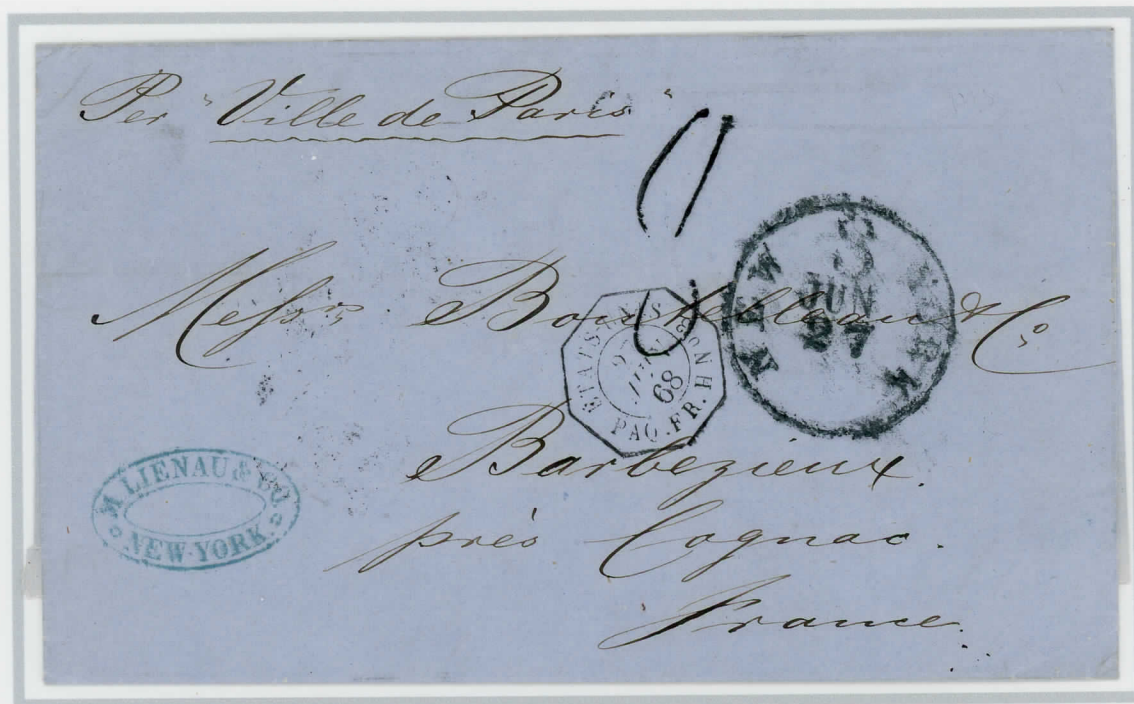 Per "Ville de Paris"
Messrs Boutelleau & Co
Barbezieux.
près Cognac.
France.
NEW YORK
3
JUN
27
ETATS-UNIS
68
PAQ. FR. H
M. LIENAU & CO.
NEW-YORK